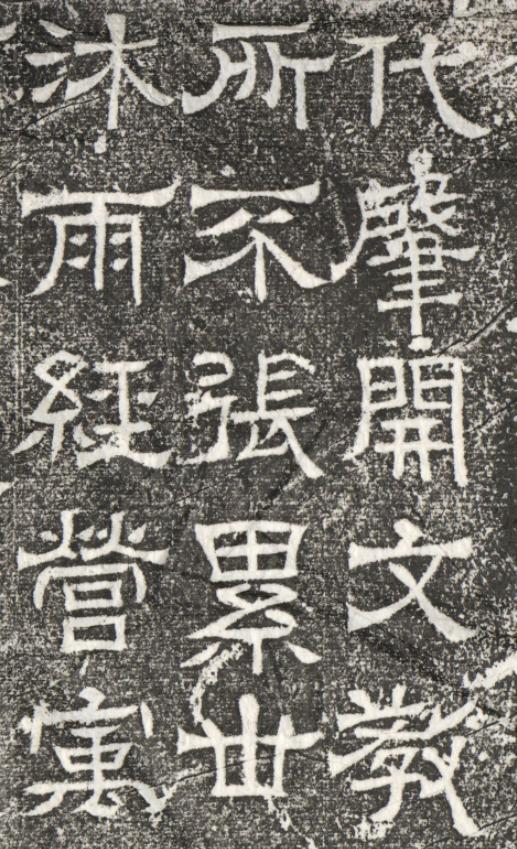 代肇開文教
所不張累世
沐雨經營寓